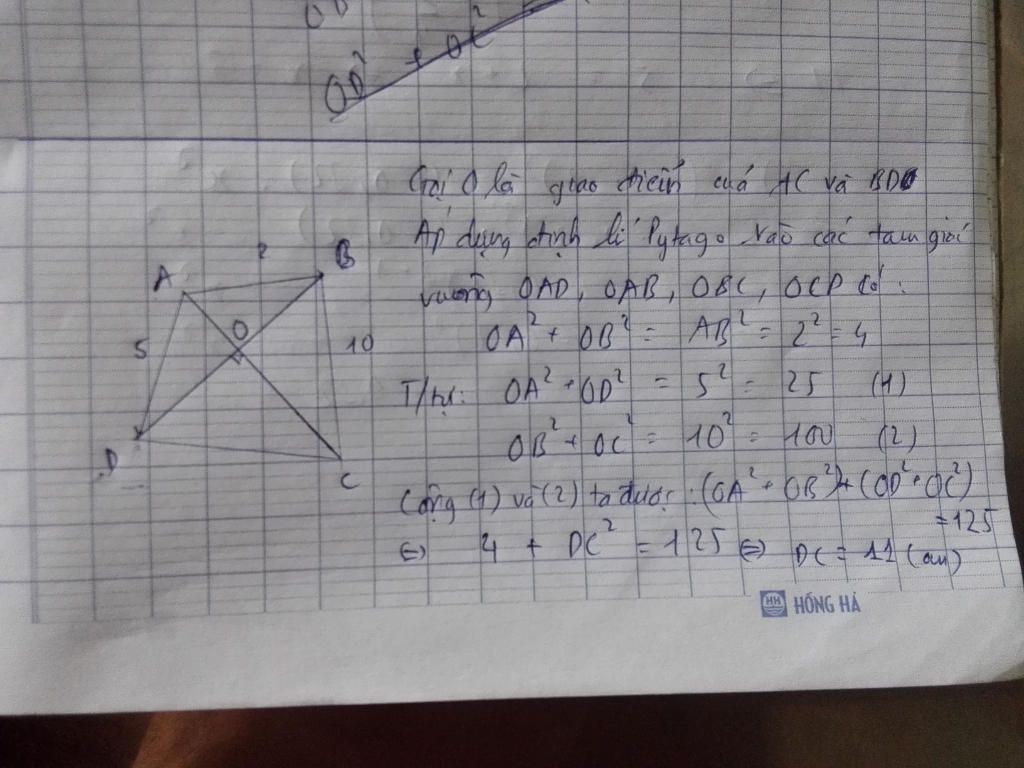 OD² + OC²
Gọi O là giao điểm của AC và BD
Áp dụng định lí Pytago vào các tam giác
vuông OAD, OAB, OBC, OCD có:
OA² + OB² = AB² = 2² = 4
T/tự: OA² + OD² = 5² = 25 (1)
OB² + OC² = 10² = 100 (2)
Cộng (1) và (2) ta được: (OA² + OB²) + (OD² + OC²)
= 125
⇔ 4 + DC² = 125 ⇔ DC = 11 (cm)
2
A
B
O
5
10
D
C
HH HỒNG HÀ